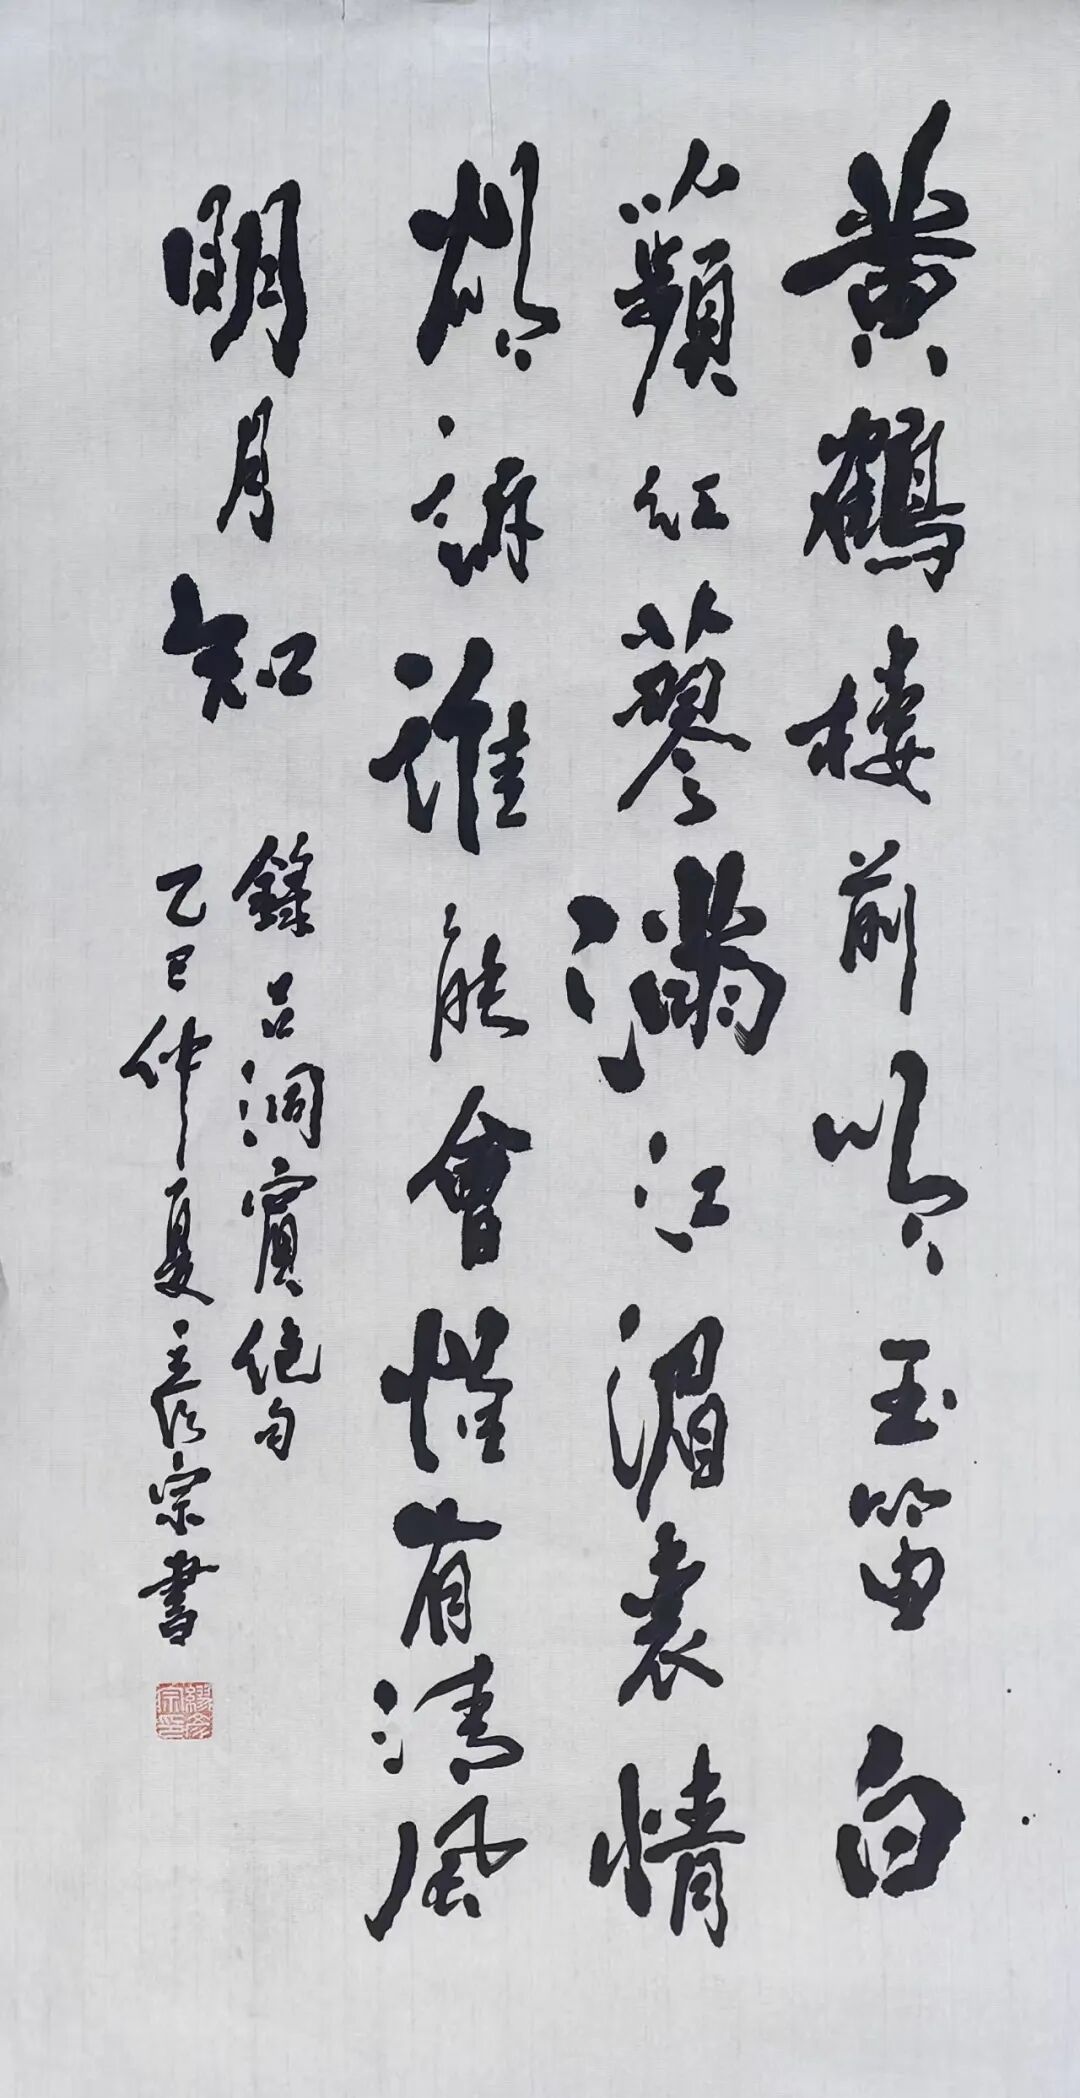 黄鶴楼前吹玉笛白
蘋紅蓼滿江湄衷情
欲訴誰能會惟有清風
明月知
錄吕洞賓絕句
乙巳仲夏彦宗書